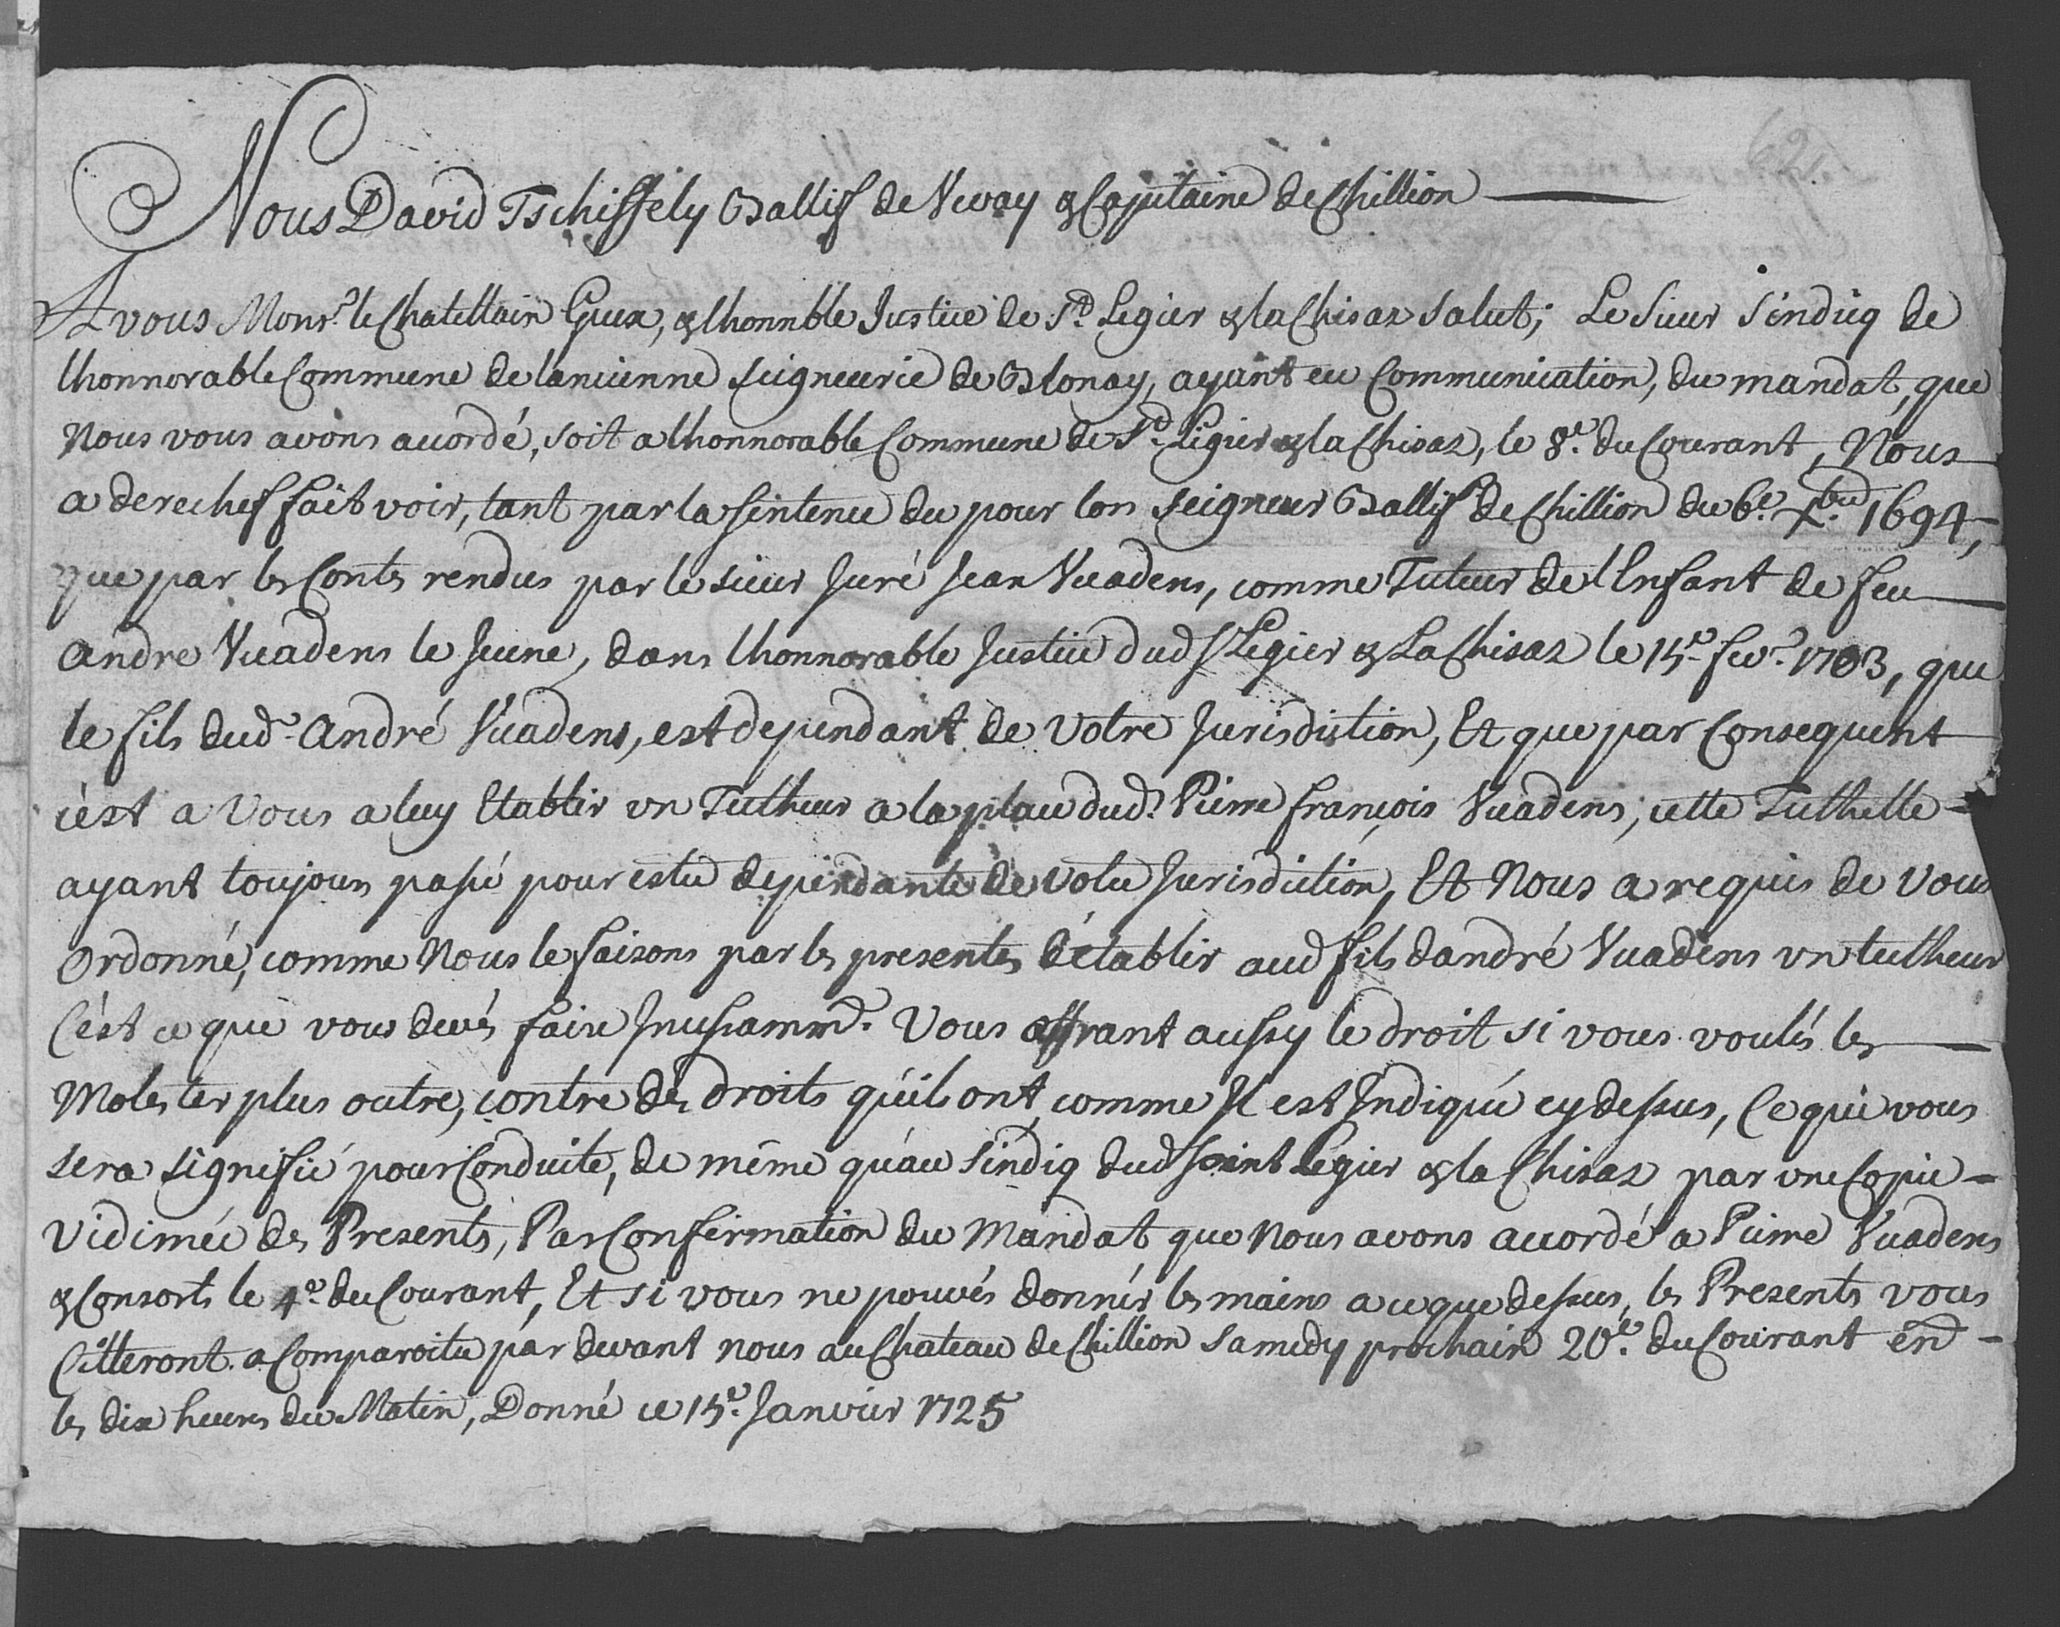 Nous David Tschiffely Ballif de Vevay & Capitaine de Chillion
A vous Monsr. le Chatellain Guex, & lhonnble Justice de St. Legier & la Chisaz salut; Le Sieur Sindicq de
lhonnorable Commune de lancienne seigneurie de Blonay, ayant eu Communication, du mandat, que
Nous vous avons accordé, soit a lhonnorable Commune de St. Legier & la Chisaz, le 8e. du Courant, Nous
a derechef fait voir, tant par la sentence du pour lors seigneur Ballif de Chillion du 6e. Xbre. 1694,
que par les Contes rendus par le sieur Juré Jean Vuadens, comme Tuteur de l'Enfant de feu
André Vuadens le Jeune, dans lhonnorable Justice dud St Legier & La Chisaz le 15e. fevr. 1703, que
le fils dud. André Vuadens, est dependant de Votre Jurisdiction, Et que par Consequent
c'est a Vous a luy Etablir vn Tutheur a la place dud. Pierre françois Vuadens, cette Tuthelle
ayant toujours passé pour estre dependante de Votre Jurisdiction, Et Nous a requis de Vous
Ordonné, comme Nous le faisons par les presentes d'établir aud fils dandré Vuadens vn tutheur
C'est ce que vous devés faire Incessamt. Vous offrant aussy le droit si vous voulés les
Molester plus outre, contre des droits qu'ils ont, comme Il est Indiqué cy dessus, Ce qui vous
sera signifié pour Conduite, de même qu'au Sindiq dud Saint Légier & la Chisaz par vne Copie
Vidimée des Presentes, Par Confirmation du Mandat que Nous avons accordé a Pierre Vuadens
& Consorts le 4e. du Courant, Et si vous ne pouvés donnér les mains a ce que dessus, les Presentes vous
Citteront a Comparoitre par devant nous au Chateau de Chillion samedy prochain 20e. du Courant en
les dix heures du Matin, Donné ce 15e. Janvier 1725